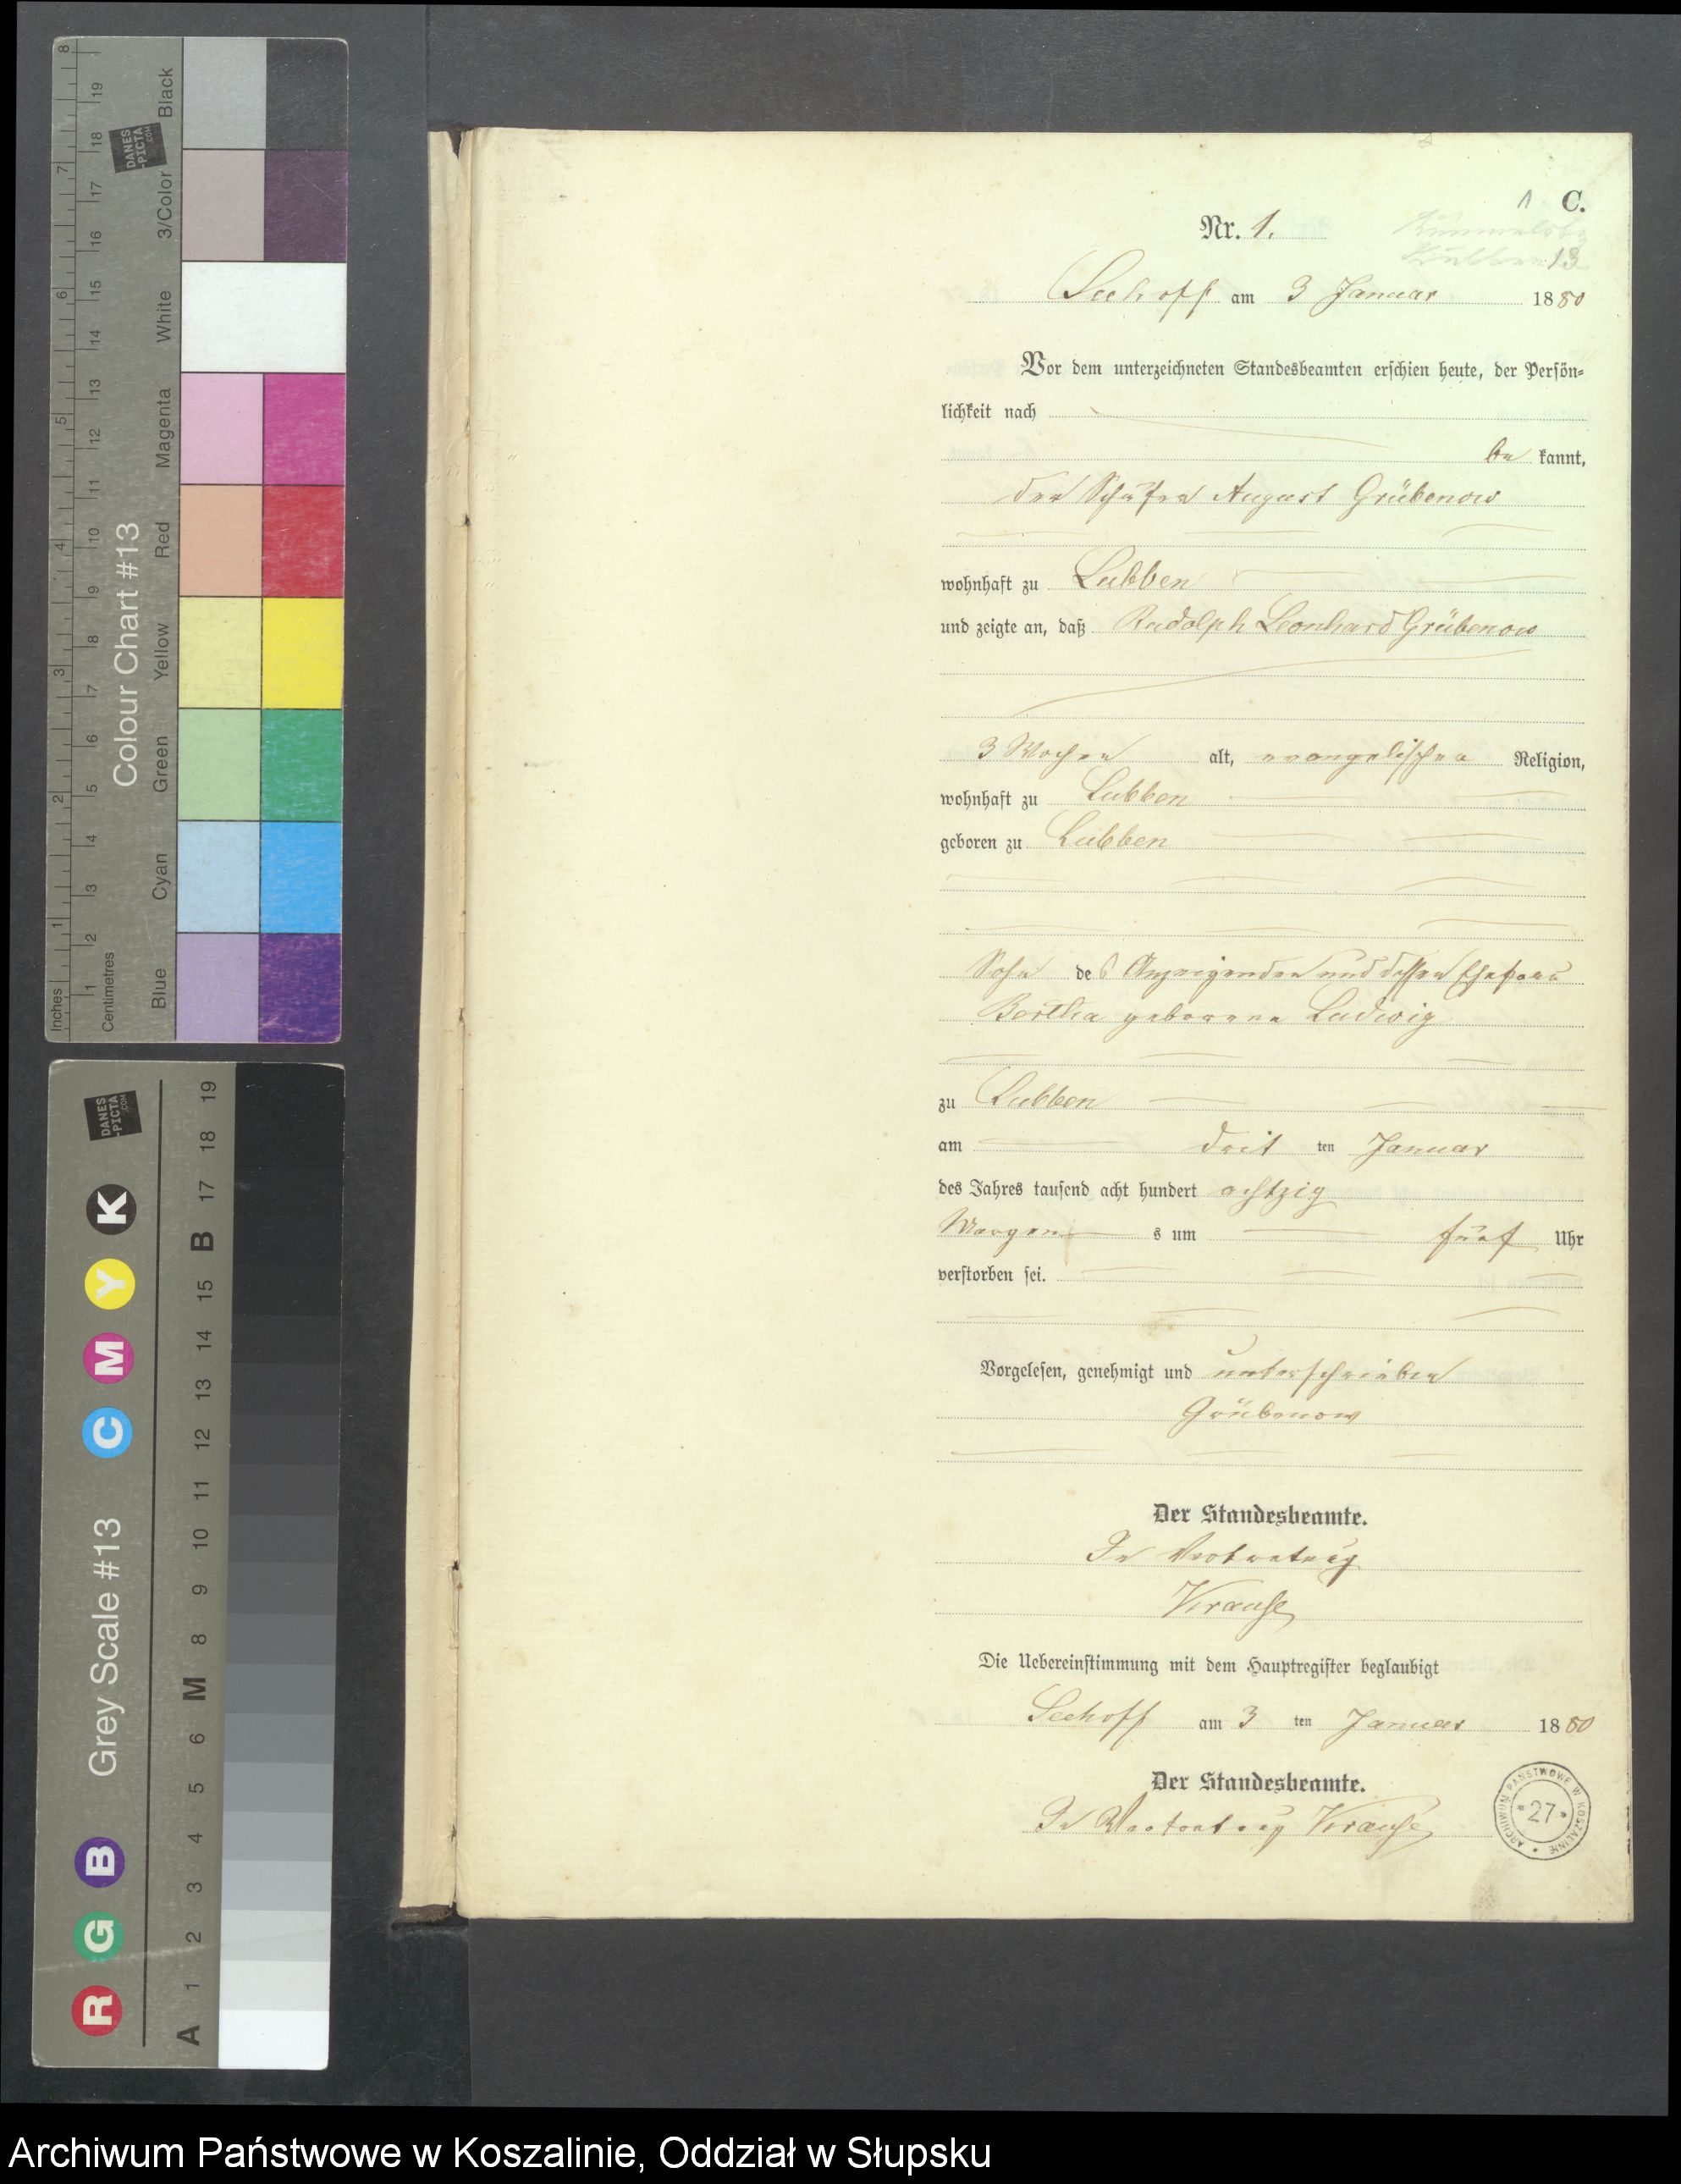 1. C.
Nr. 1.
13
Seehoff am 3 Januar 1880
Vor dem unterzeichneten Standesbeamten erschien heute, der Persön-
lichkeit nach
be kannt,
der Schäfer August Grübenow
wohnhaft zu Lubben
und zeigte an, daß Rudolph Leonhard Grübenow
3 Wochen alt, evangelischer Religion,
wohnhaft zu Lubben
geboren zu Lubben
Sohn des Anzeigenden und dessen Ehefrau
Bertha geborene Ludwig
zu Lubben
am drit ten Januar
des Jahres tausend acht hundert achtzig
Morgens um fünf Uhr
verstorben sei.
Vorgelesen, genehmigt und unterschrieben
Grübenow
Der Standesbeamte.
In Vertretung
Krause
Die Uebereinstimmung mit dem Hauptregister beglaubigt
Seehoff am 3 ten Januar 1880
Der Standesbeamte.
In Vertretung Krause
ARCHIWUM PAŃSTWOWE W KOSZALINIE
*27*
Inches 1 2 3 4 5 6 7 8
Centimetres 1 2 3 4 5 6 7 8 9 10 11 12 13 14 15 16 17 18 19
Colour Chart #13
DANES-PICTA.COM
Blue Cyan Green Yellow Red Magenta White 3/Color Black
Grey Scale #13
R G B C M Y K
DANES-PICTA.COM
A 1 2 3 4 5 6 M 8 9 10 11 12 13 14 15 B 17 18 19
Archiwum Państwowe w Koszalinie, Oddział w Słupsku